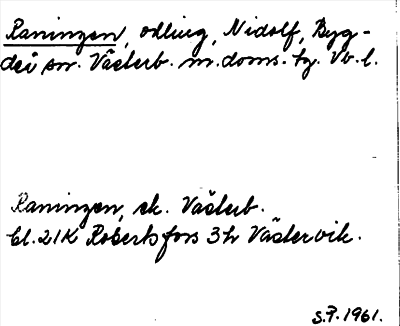 Raningen, odling, Nidolf, Byg-
deå sn. Västerb. m. doms. tg. Vb. l.
Raningen, ek. Västerb.
bl. 21K Robertsfors 3h Västervik.
S.P. 1961.